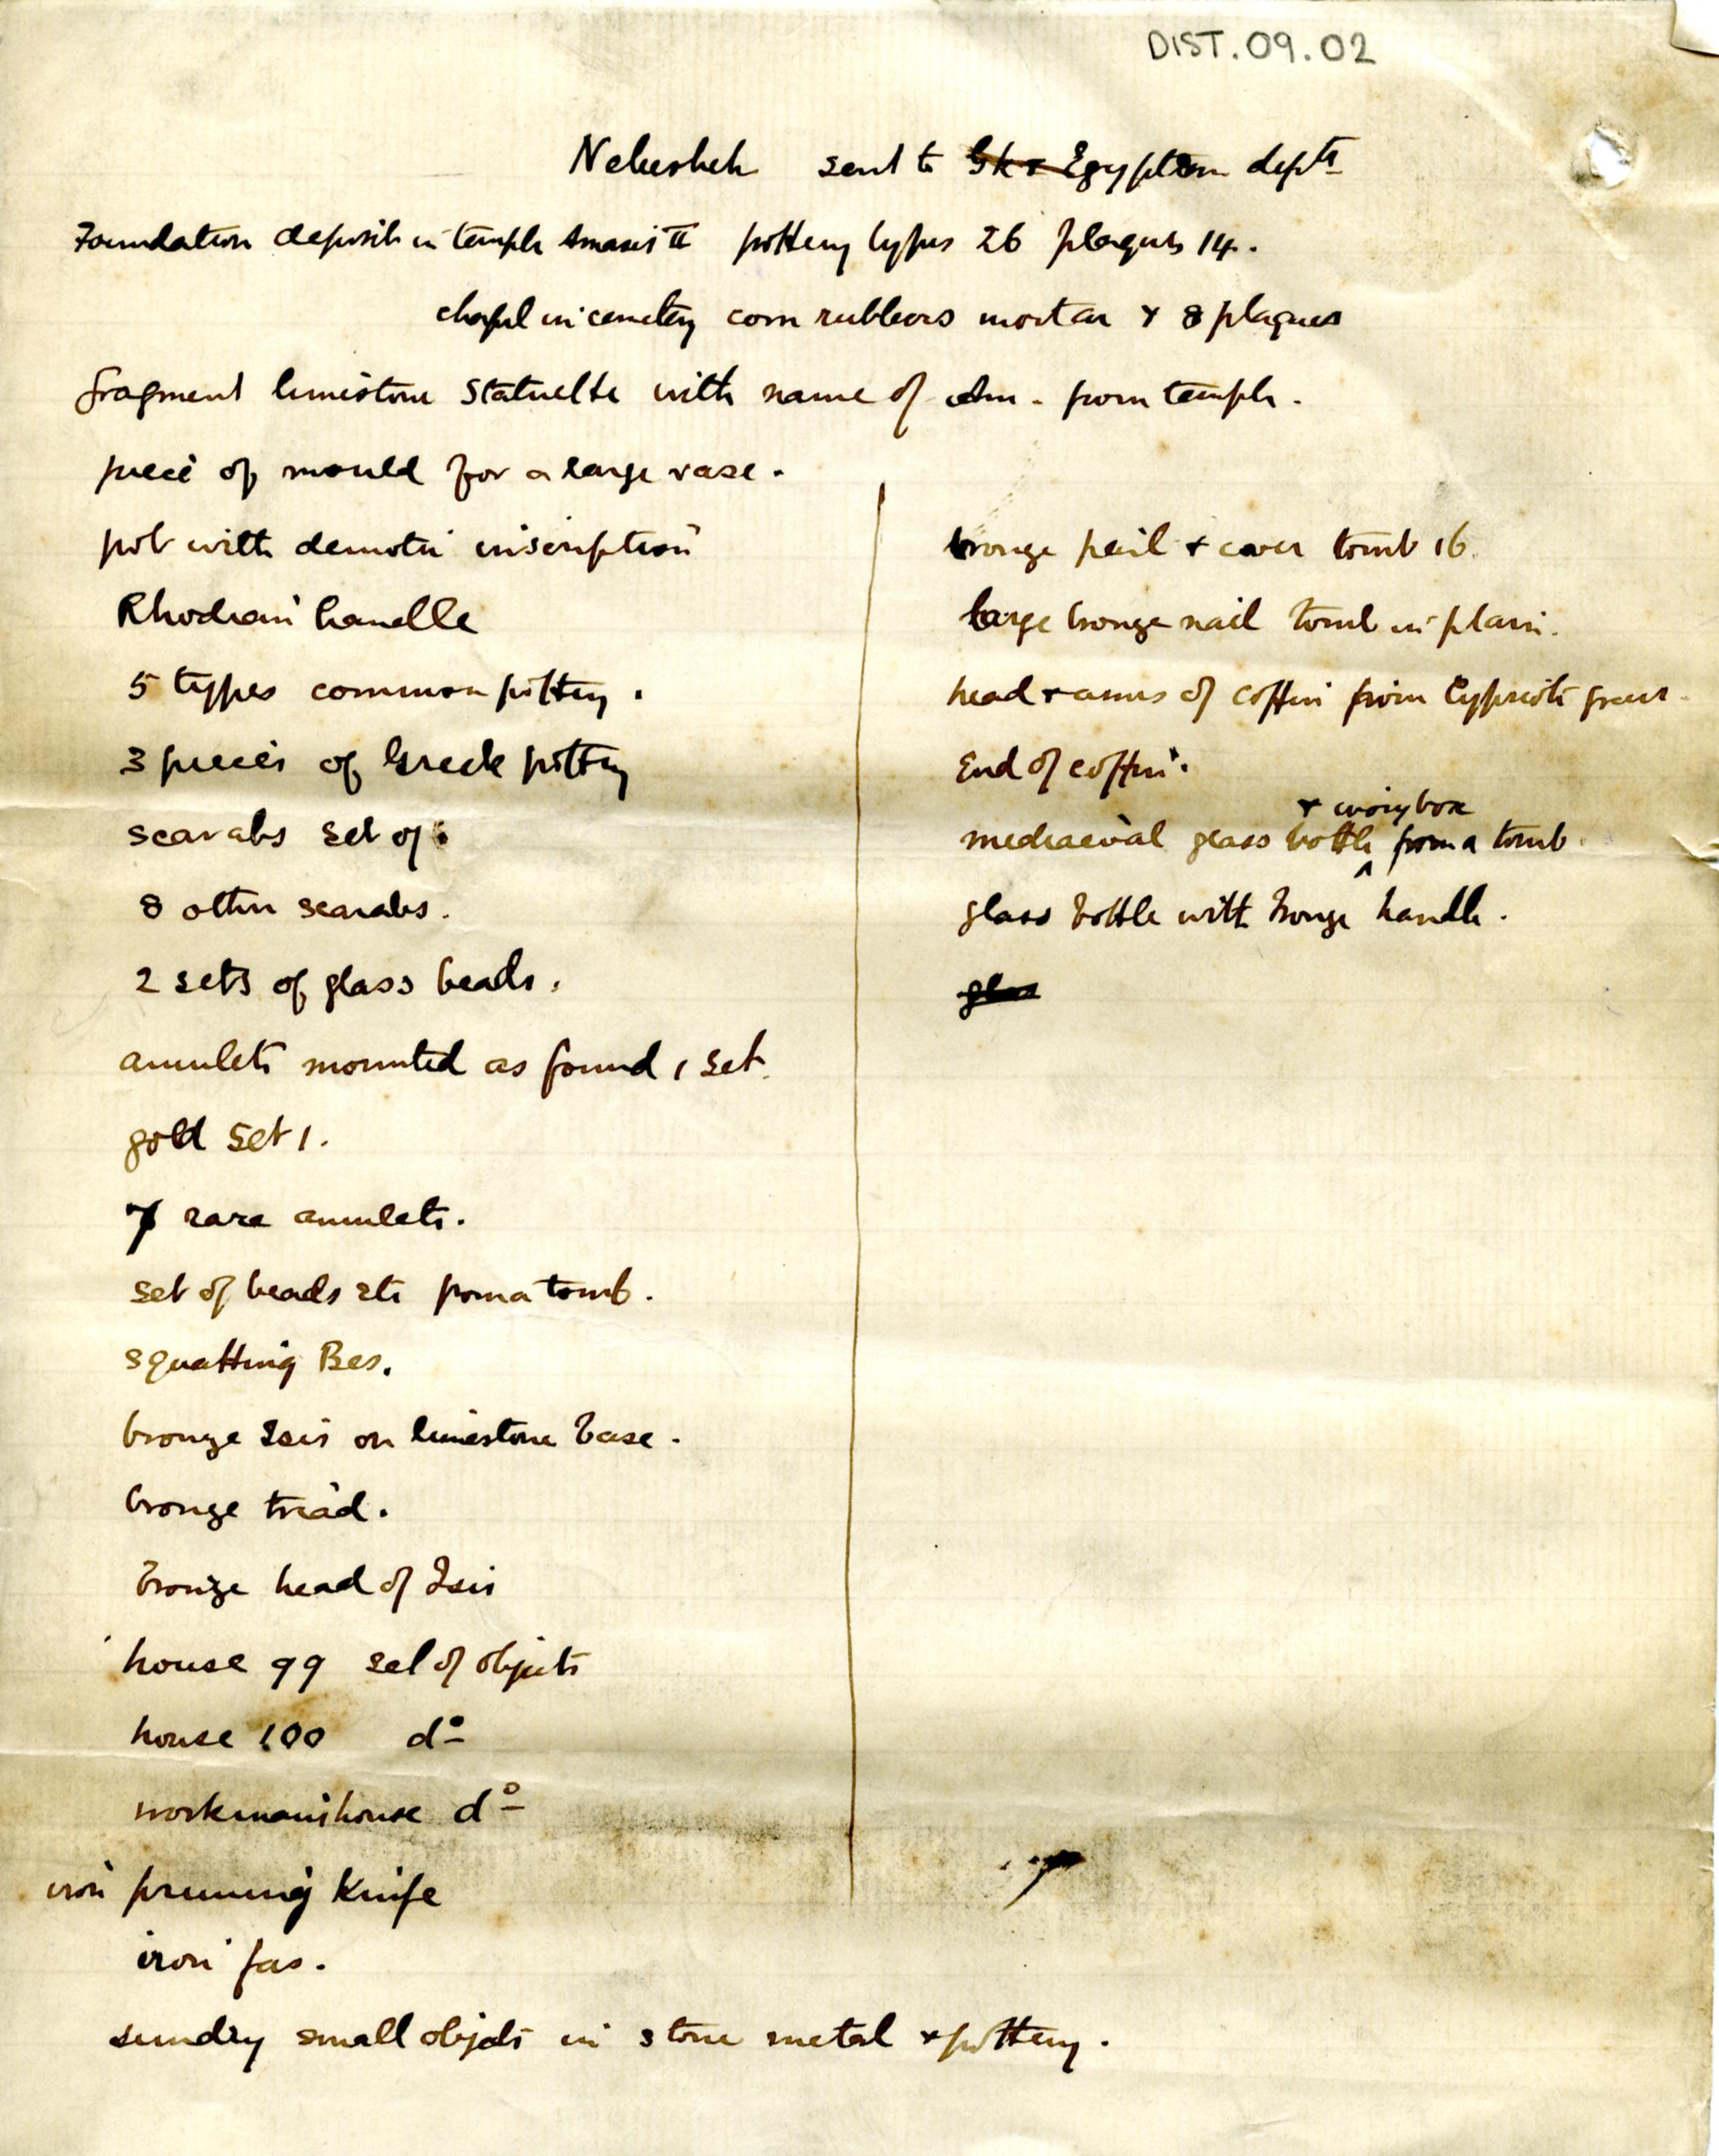 DIST.09.02
Nebesheh sent to Gk & Egyptian depts
Foundation deposits in temple Amasis II pottery types 26 plaques 14.
chapel in cemetery corn rubbers mortar & 8 plaques
fragment limestone statuette with name of Am. from temple.
piece of mould for a large vase.
pot with demotic inscription
Rhodian handle
5 types common pottery.
3 pieces of Greek pottery
scarabs set of
8 other scarabs.
2 sets of glass beads.
amulets mounted as found 1 set.
gold set 1.
7 rare amulets.
set of beads etc from a tomb.
squatting Bes.
bronze Isis on limestone base.
bronze triad.
Bronze head of Isis
house 99 set of objects
house 100 do
workmans house do
iron pruning knife
iron fas.
sundry small objects in stone metal & pottery.
bronze pail & cover tomb 16.
large bronze nail tomb in plain.
head & arms of coffin from Cypriote
End of coffin.
& ivory box
mediaeval glass bottle from a tomb.
glass bottle with bronze handle.
glass